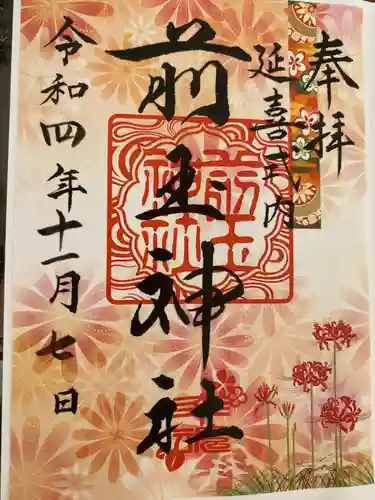 奉拝
延喜式内
前玉神社
令和四年十一月七日
前玉神社